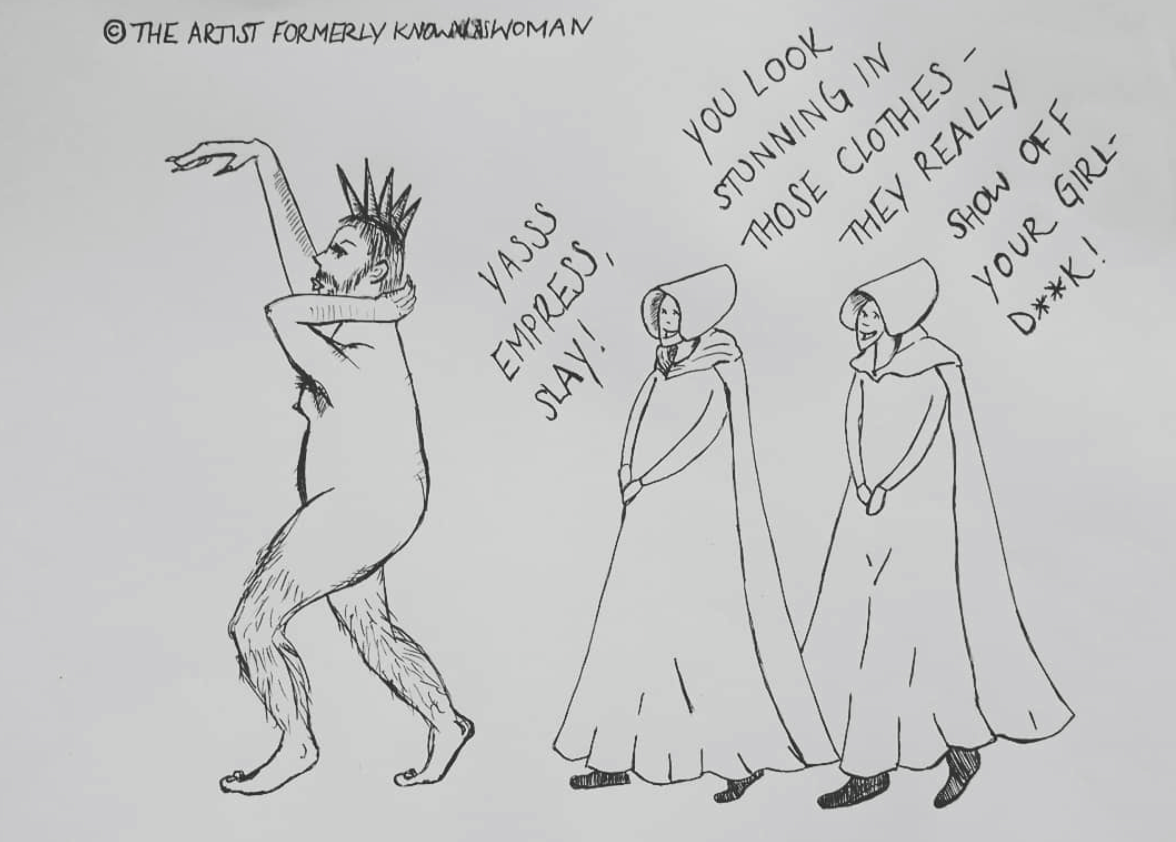 © THE ARTIST FORMERLY KNOWN AS WOMAN
YASSS
EMPRESS,
SLAY!
YOU LOOK
STUNNING IN
THOSE CLOTHES -
THEY REALLY
SHOW OFF
YOUR GIRL-
D**K!